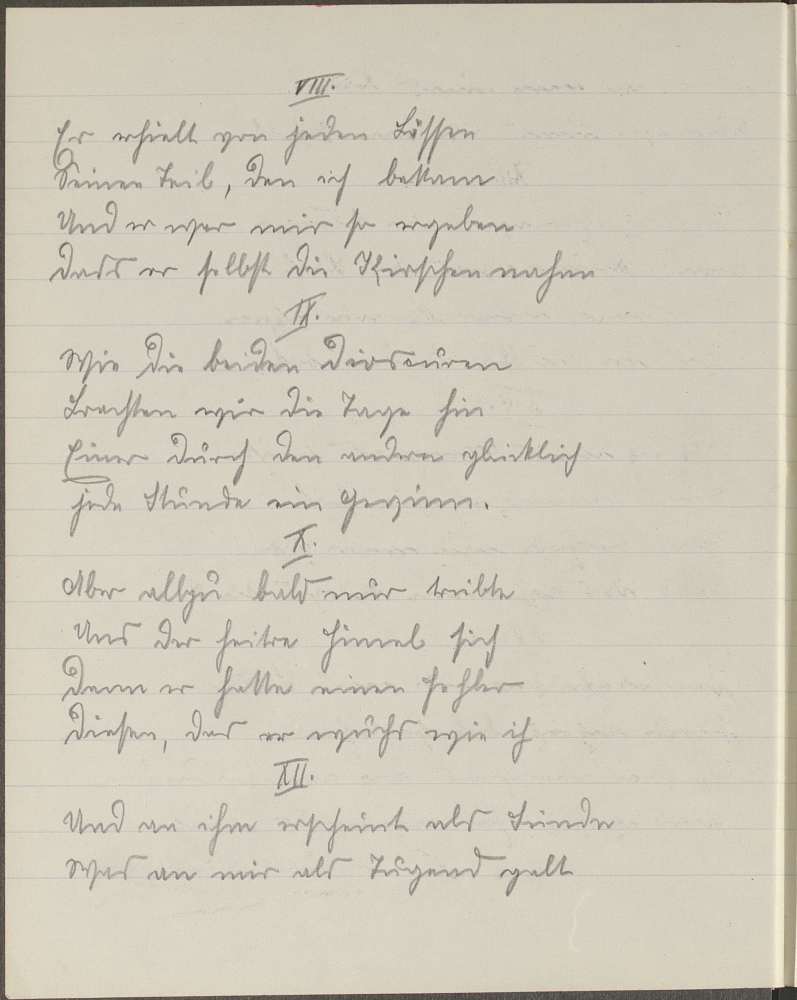 VIII.
Er erhielt von jeden Bissen
Seinen Teil, den ich bekam
Und er war mir so ergeben
Dass er selbst die Kirschen nahm
IX.
Wie die beiden Dioscuren
Brachten wir die Tage hin
Einer durch den andern glücklich
jede Stunde ein Gewinn.
X.
Aber allzu bald nur trübte
Uns der heitre Himmel sich
Denn er hatte einen Fehler
Diesen, das er wuchs wie ich
XII.
Und an ihm erscheint als Sünde
Was an mir als Tugend galt